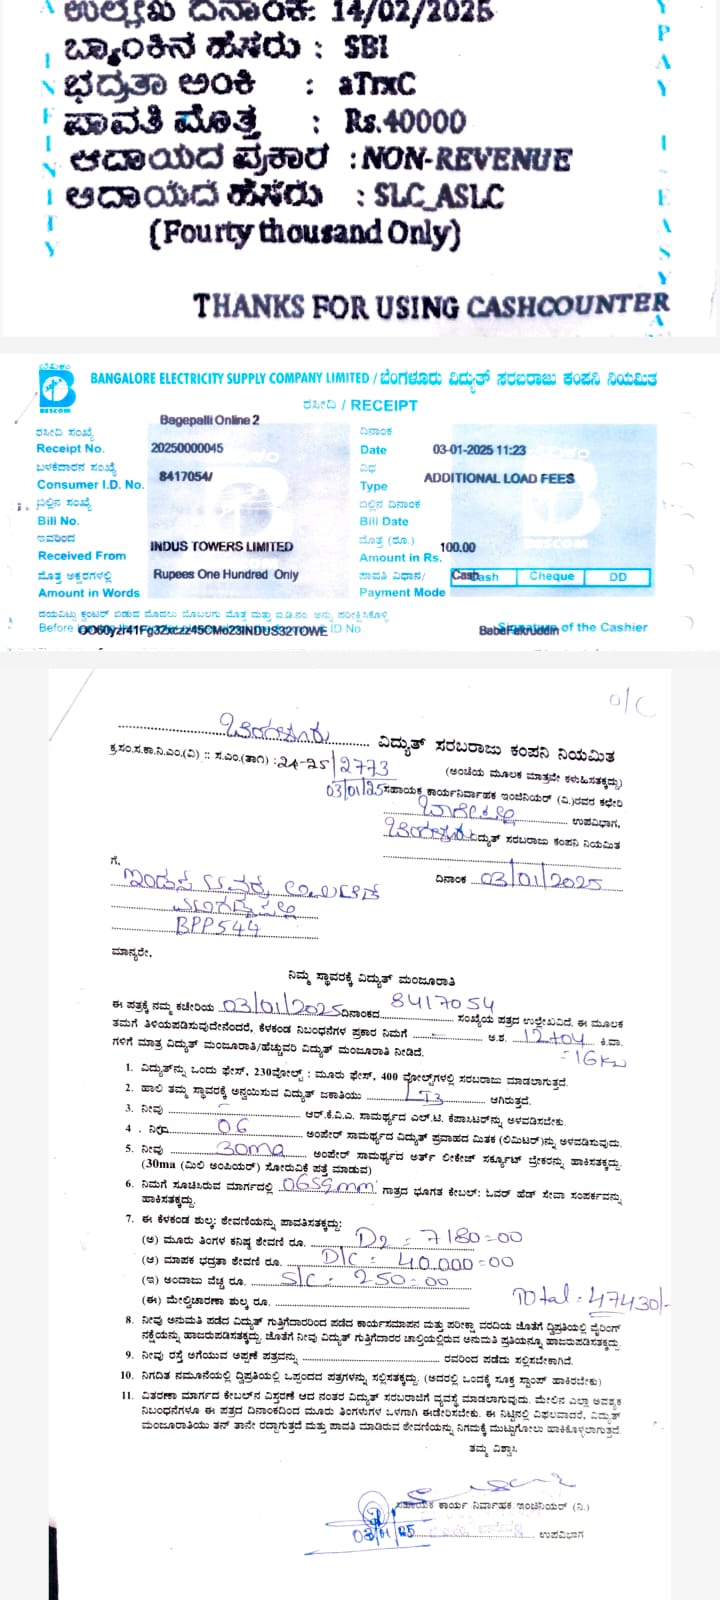 ಉಲ್ಲೇಖ ದಿನಾಂಕ: 14/02/2025
ಬ್ಯಾಂಕಿನ ಹೆಸರು : SBI
ಭದ್ರತಾ ಅಂಕಿ : aTrxC
ಪಾವತಿ ಮೊತ್ತ : Rs.40000
ಆದಾಯದ ಪ್ರಕಾರ :NON-REVENUE
ಆದಾಯದ ಹೆಸರು : SLC_ASLC
(Fourty thousand Only)
THANKS FOR USING CASHCOUNTER
BANGALORE ELECTRICITY SUPPLY COMPANY LIMITED / ಬೆಂಗಳೂರು ವಿದ್ಯುತ್ ಸರಬರಾಜು ಕಂಪನಿ ನಿಯಮಿತ
BESCOM
ರಸೀದಿ / RECEIPT
Bagepalli Online 2
ರಸೀದಿ ಸಂಖ್ಯೆ
Receipt No. 20250000045
ಬಳಕೆದಾರನ ಸಂಖ್ಯೆ
Consumer I.D. No. 8417054/
ಬಿಲ್ಲಿನ ಸಂಖ್ಯೆ
Bill No.
ಇವರಿಂದ
Received From INDUS TOWERS LIMITED
ಮೊತ್ತ ಅಕ್ಷರಗಳಲ್ಲಿ
Amount in Words Rupees One Hundred Only
ದಿನಾಂಕ
Date 03-01-2025 11:23
ವಿಧ
Type ADDITIONAL LOAD FEES
ಬಿಲ್ಲಿನ ದಿನಾಂಕ
Bill Date
ಮೊತ್ತ (ರೂ.)
Amount in Rs. 100.00
ಪಾವತಿ ವಿಧಾನ/
Payment Mode Cash Cash Cheque DD
Before ID No BabaFakruddin Signature of the Cashier
O/C
ಬೆಂಗಳೂರು ವಿದ್ಯುತ್ ಸರಬರಾಜು ಕಂಪನಿ ನಿಯಮಿತ
24-25/2773
(ಅಂಚೆಯ ಮೂಲಕ ಮಾತ್ರವೇ ಕಳುಹಿಸತಕ್ಕದ್ದು)
03/01/25 ಸಹಾಯಕ ಕಾರ್ಯನಿರ್ವಾಹಕ ಇಂಜಿನಿಯರ್ (ವಿ.)ರವರ ಕಛೇರಿ
ಬಾಗೇಪಲ್ಲಿ ಉಪವಿಭಾಗ,
ಬೆಂಗಳೂರು ವಿದ್ಯುತ್ ಸರಬರಾಜು ಕಂಪನಿ ನಿಯಮಿತ
ದಿನಾಂಕ 03/01/2025
ಗೆ,
ಇಂಡಸ್ ಟವರ್ಸ್ ಲಿಮಿಟೆಡ್
BPP544
ಮಾನ್ಯರೇ,
ನಿಮ್ಮ ಸ್ಥಾವರಕ್ಕೆ ವಿದ್ಯುತ್ ಮಂಜೂರಾತಿ
ಈ ಪತ್ರಕ್ಕೆ ನಮ್ಮ ಕಚೇರಿಯ 03/01/2025 ದಿನಾಂಕದ 8417054 ಸಂಖ್ಯೆಯ ಪತ್ರದ ಉಲ್ಲೇಖವಿದೆ. ಈ ಮೂಲಕ
ತಮಗೆ ತಿಳಿಯಪಡಿಸುವುದೇನೆಂದರೆ, ಕೆಳಕಂಡ ನಿಬಂಧನೆಗಳ ಪ್ರಕಾರ ನಿಮಗೆ ಅ.ಶ. 12+04 ಕಿ.ವಾ.
ಗಳಿಗೆ ಮಾತ್ರ ವಿದ್ಯುತ್ ಮಂಜೂರಾತಿ/ಹೆಚ್ಚುವರಿ ವಿದ್ಯುತ್ ಮಂಜೂರಾತಿ ನೀಡಿದೆ. =16Kw
1. ವಿದ್ಯುತ್‌ನ್ನು ಒಂದು ಫೇಸ್, 230ವೋಲ್ಟ್ : ಮೂರು ಫೇಸ್, 400 ವೋಲ್ಟ್‌ಗಳಲ್ಲಿ ಸರಬರಾಜು ಮಾಡಲಾಗುತ್ತದೆ.
2. ಹಾಲಿ ತಮ್ಮ ಸ್ಥಾವರಕ್ಕೆ ಅನ್ವಯಿಸುವ ವಿದ್ಯುತ್ ಜಕಾತಿಯು LT3 ಆಗಿರುತ್ತದೆ.
3. ನೀವು ಆರ್.ಕೆ.ವಿ.ಎ. ಸಾಮರ್ಥ್ಯದ ಎಲ್.ಟಿ. ಕೆಪಾಸಿಟರ್‌ನ್ನು ಅಳವಡಿಸಬೇಕು.
4. ನೀವು 06 ಅಂಪೇರ್ ಸಾಮರ್ಥ್ಯದ ವಿದ್ಯುತ್ ಪ್ರವಾಹದ ಮಿತಕ (ಲಿಮಿಟರ್)ನ್ನು ಅಳವಡಿಸುವುದು.
5. ನೀವು 30ma ಅಂಪೇರ್ ಸಾಮರ್ಥ್ಯದ ಅರ್ತ್ ಲೀಕೇಜ್ ಸರ್ಕ್ಯೂಟ್ ಬ್ರೇಕರನ್ನು ಹಾಕಿಸತಕ್ಕದ್ದು.
(30ma (ಮಿಲಿ ಅಂಪಿಯರ್) ಸೋರುವಿಕೆ ಪತ್ತೆ ಮಾಡುವ)
6. ನಿಮಗೆ ಸೂಚಿಸಿರುವ ಮಾರ್ಗದಲ್ಲಿ 06Sqmm ಗಾತ್ರದ ಭೂಗತ ಕೇಬಲ್: ಓವರ್ ಹೆಡ್ ಸೇವಾ ಸಂಪರ್ಕವನ್ನು
ಹಾಕಿಸತಕ್ಕದ್ದು.
7. ಈ ಕೆಳಕಂಡ ಶುಲ್ಕ: ಠೇವಣಿಯನ್ನು ಪಾವತಿಸತಕ್ಕದ್ದು:
(ಅ) ಮೂರು ತಿಂಗಳ ಕನಿಷ್ಠ ಠೇವಣಿ ರೂ. D2 = 7180=00
(ಆ) ಮಾಪಕ ಭದ್ರತಾ ಠೇವಣಿ ರೂ. D/C = 40.000=00
(ಇ) ಅಂದಾಜು ವೆಚ್ಚ ರೂ. S/C = 250=00
(ಈ) ಮೇಲ್ವಿಚಾರಣಾ ಶುಲ್ಕ ರೂ. Total = 47430/-
8. ನೀವು ಅನುಮತಿ ಪಡೆದ ವಿದ್ಯುತ್ ಗುತ್ತಿಗೆದಾರರಿಂದ ಪಡೆದ ಕಾರ್ಯಸಮಾಪನ ಮತ್ತು ಪರೀಕ್ಷಾ ವರದಿಯ ಜೊತೆಗೆ ದ್ವಿಪ್ರತಿಯಲ್ಲಿ ವೈರಿಂಗ್
ನಕ್ಷೆಯನ್ನು ಹಾಜರುಪಡಿಸತಕ್ಕದ್ದು. ಜೊತೆಗೆ ನೀವು ವಿದ್ಯುತ್ ಗುತ್ತಿಗೆದಾರರ ಚಾಲ್ತಿಯಲ್ಲಿರುವ ಅನುಮತಿ ಪ್ರತಿಯನ್ನೂ ಹಾಜರುಪಡಿಸತಕ್ಕದ್ದು.
9. ನೀವು ರಸ್ತೆ ಅಗೆಯುವ ಅಪ್ಪಣೆ ಪತ್ರವನ್ನು ರವರಿಂದ ಪಡೆದು ಸಲ್ಲಿಸಬೇಕಾಗಿದೆ.
10. ನಿಗದಿತ ನಮೂನೆಯಲ್ಲಿ ದ್ವಿಪ್ರತಿಯಲ್ಲಿ ಒಪ್ಪಂದದ ಪತ್ರಗಳನ್ನು ಸಲ್ಲಿಸತಕ್ಕದ್ದು. (ಅದರಲ್ಲಿ ಒಂದಕ್ಕೆ ಸೂಕ್ತ ಸ್ಟಾಂಪ್ ಹಾಕಿರಬೇಕು)
11. ವಿತರಣಾ ಮಾರ್ಗದ ಕೇಬಲ್‌ನ ವಿಸ್ತರಣೆ ಆದ ನಂತರ ವಿದ್ಯುತ್ ಸರಬರಾಜಿಗೆ ವ್ಯವಸ್ಥೆ ಮಾಡಲಾಗುವುದು. ಮೇಲಿನ ಎಲ್ಲಾ ಅವಶ್ಯಕ
ನಿಬಂಧನೆಗಳೂ ಈ ಪತ್ರದ ದಿನಾಂಕದಿಂದ ಮೂರು ತಿಂಗಳುಗಳ ಒಳಗಾಗಿ ಈಡೇರಿಸಬೇಕು. ಈ ನಿಟ್ಟಿನಲ್ಲಿ ವಿಫಲವಾದರೆ, ವಿದ್ಯುತ್
ಮಂಜೂರಾತಿಯು ತನ್ ತಾನೇ ರದ್ದಾಗುತ್ತದೆ ಮತ್ತು ಪಾವತಿ ಮಾಡಿರುವ ಠೇವಣಿಯನ್ನು ನಿಗಮಕ್ಕೆ ಮುಟ್ಟುಗೋಲು ಹಾಕಿಕೊಳ್ಳಲಾಗುತ್ತದೆ.
ತಮ್ಮ ವಿಶ್ವಾಸಿ
ಸಹಾಯಕ ಕಾರ್ಯ ನಿರ್ವಾಹಕ ಇಂಜಿನಿಯರ್ (ವಿ.)
03/01/25 ಉಪವಿಭಾಗ